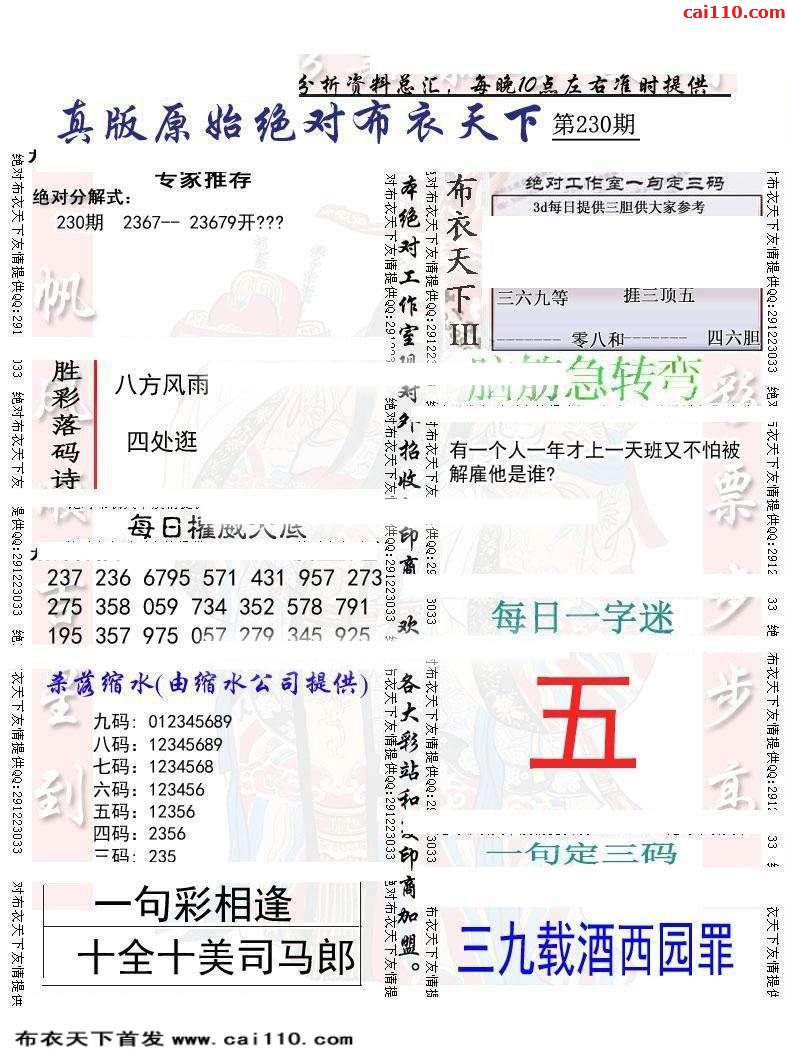 cai110.com
分析资料总汇，每晚10点左右准时提供
真版原始绝对布衣天下 第230期
专家推荐
绝对分解式：
230期 2367-- 23679开???
胜彩落码诗
八方风雨
四处逛
每日权威大底
237 236 6795 571 431 957 273
275 358 059 734 352 578 791
195 357 975 057 279 345 925
杀落缩水(由缩水公司提供)
九码: 012345689
八码: 12345689
七码: 1234568
六码: 123456
五码: 12356
四码: 2356
三码: 235
一句彩相逢
十全十美司马郎
本绝对工作室
对外招收
印商
欢
各大彩站和
印商加盟。
布衣天下III
绝对工作室一句定三码
3d每日提供三胆供大家参考
三六九等 捱三顶五
-------- 零八和------- 四六胆
脑筋急转弯
有一个人一年才上一天班又不怕被
解雇他是谁?
每日一字迷
五
一句定三码
三九载酒西园罪
绝对布衣天下友情提供QQ:291223033
帆
吉
到
彩票
步步高
布衣天下首发 www.cai110.com